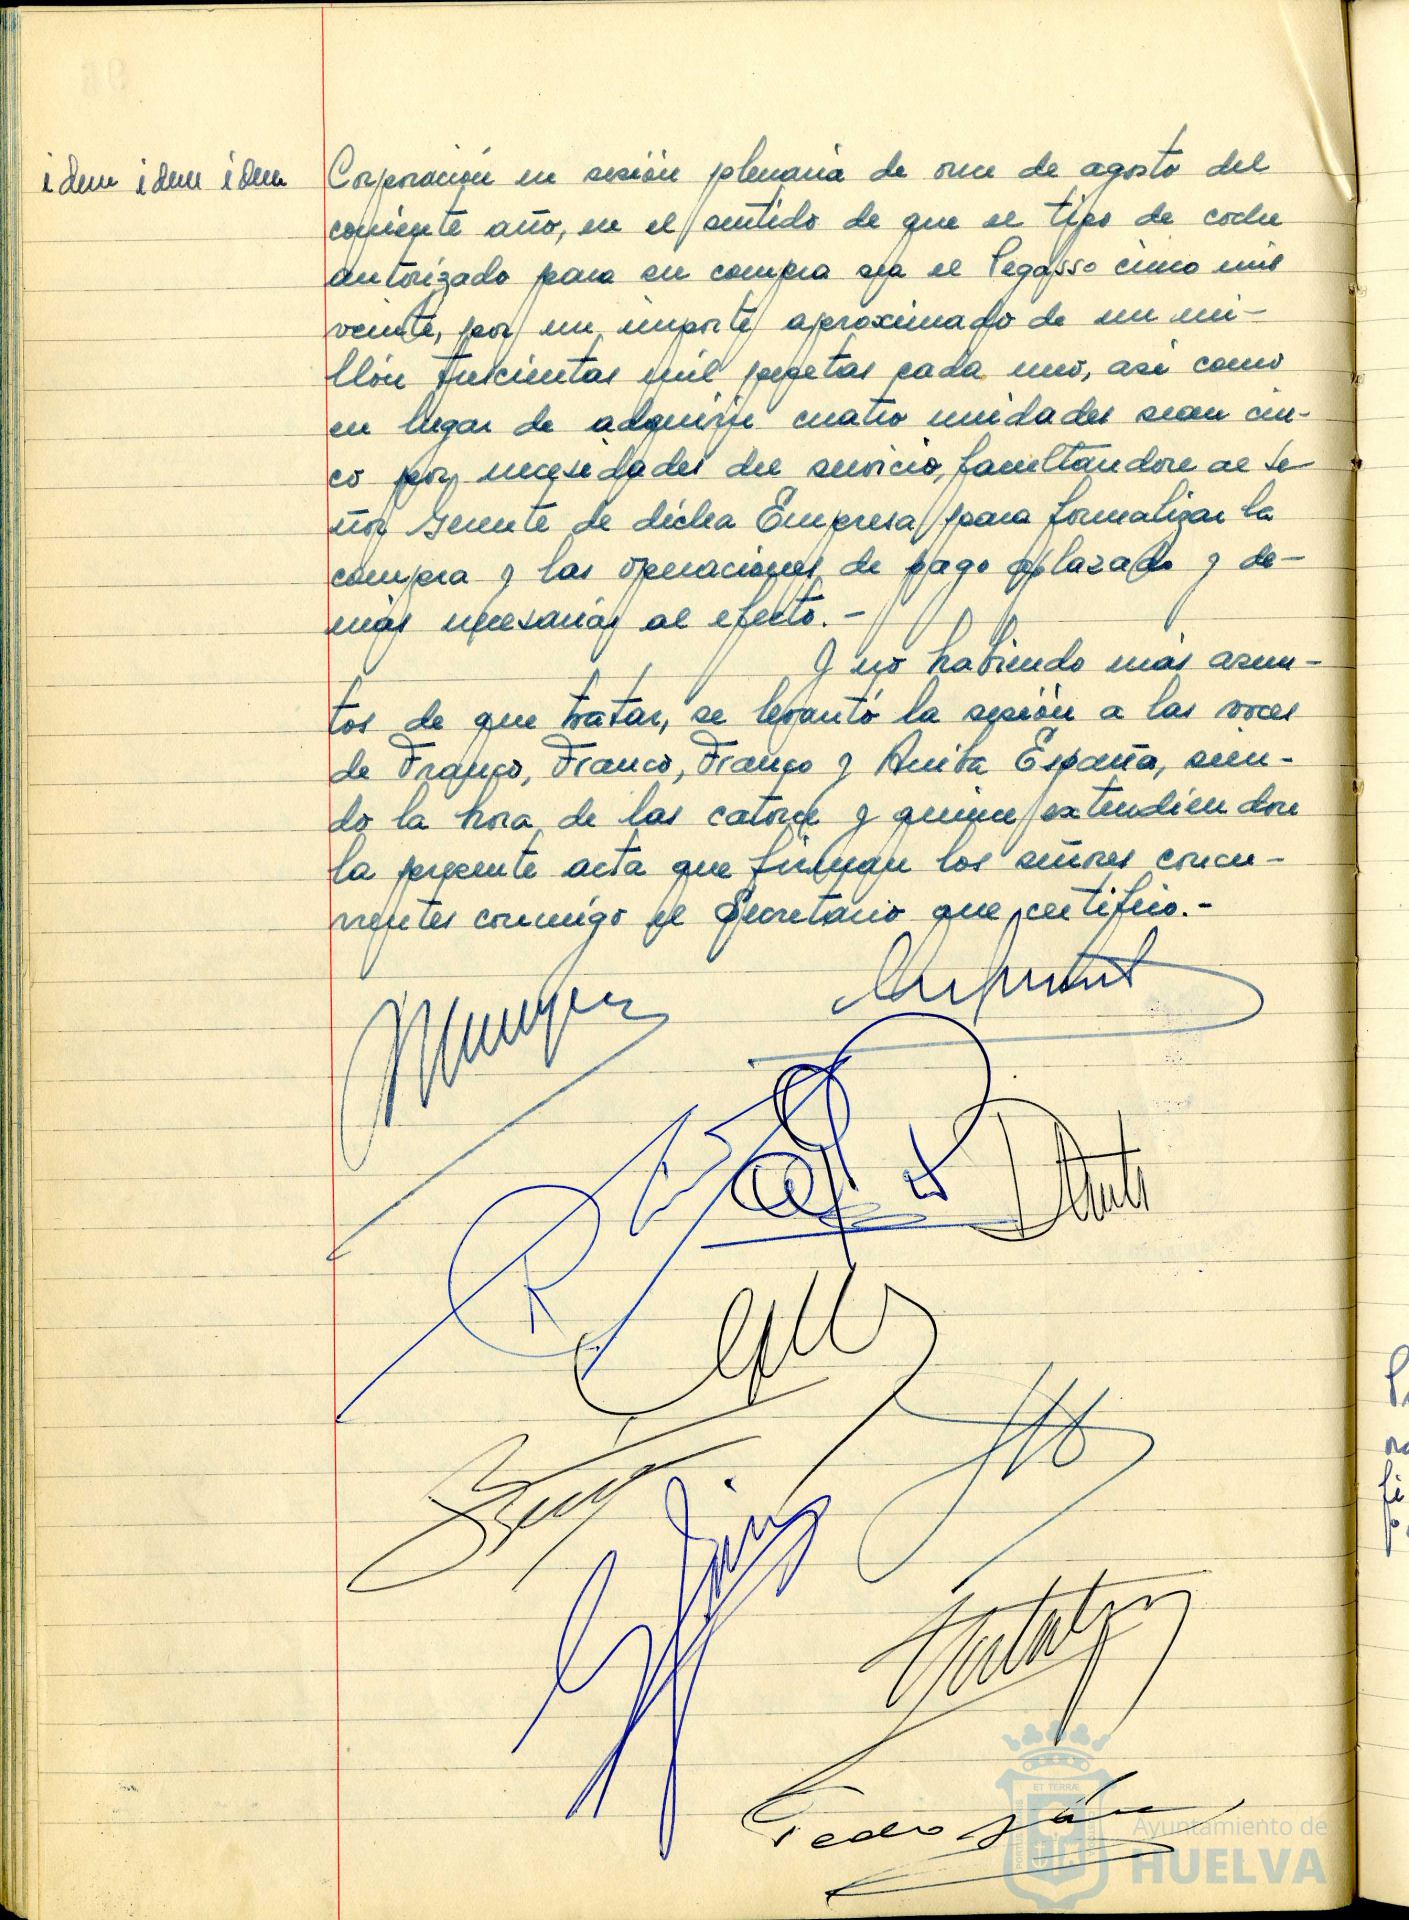 idem idem idem
Corporación en sesión plenaria de once de agosto del
corriente año, en el sentido de que el tipo de coche
autorizado para su compra sea el Pegasso cinco mil
veinte, por un importe aproximado de un mi-
llón trescientas mil pesetas cada uno, así como
en lugar de adquirir cuatro unidades sean cin-
co por necesidades del servicio, facultandose al Se-
ñor Gerente de dicha Empresa para formalizar la
compra y las operaciones de pago aplazado y de-
más necesarias al efecto.-
Y no habiendo más asun-
tos de que tratar, se levantó la sesión a las voces
de Franco, Franco, Franco y Arriba España, sien-
do la hora de las catorce y quince extendiendose
la presente acta que firman los señores concu-
rrentes conmigo el Secretario que certifico.-
Pedro
ET TERRAE
Ayuntamiento de
HUELVA